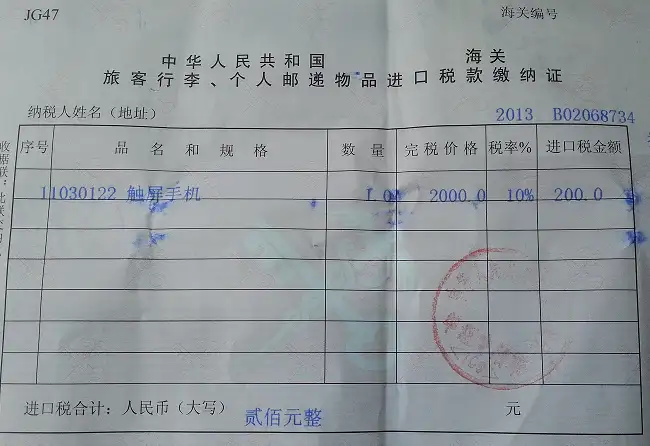 JG47 海关编号
中华人民共和国 海关
旅客行李、个人邮递物品进口税款缴纳证
纳税人姓名（地址） 2013 B02068734
序号 品名和规格 数量 完税价格 税率% 进口税金额
11030122 触屏手机 1.0 2000.0 10% 200.0
进口税合计：人民币（大写） 贰佰元整 元
收据联：